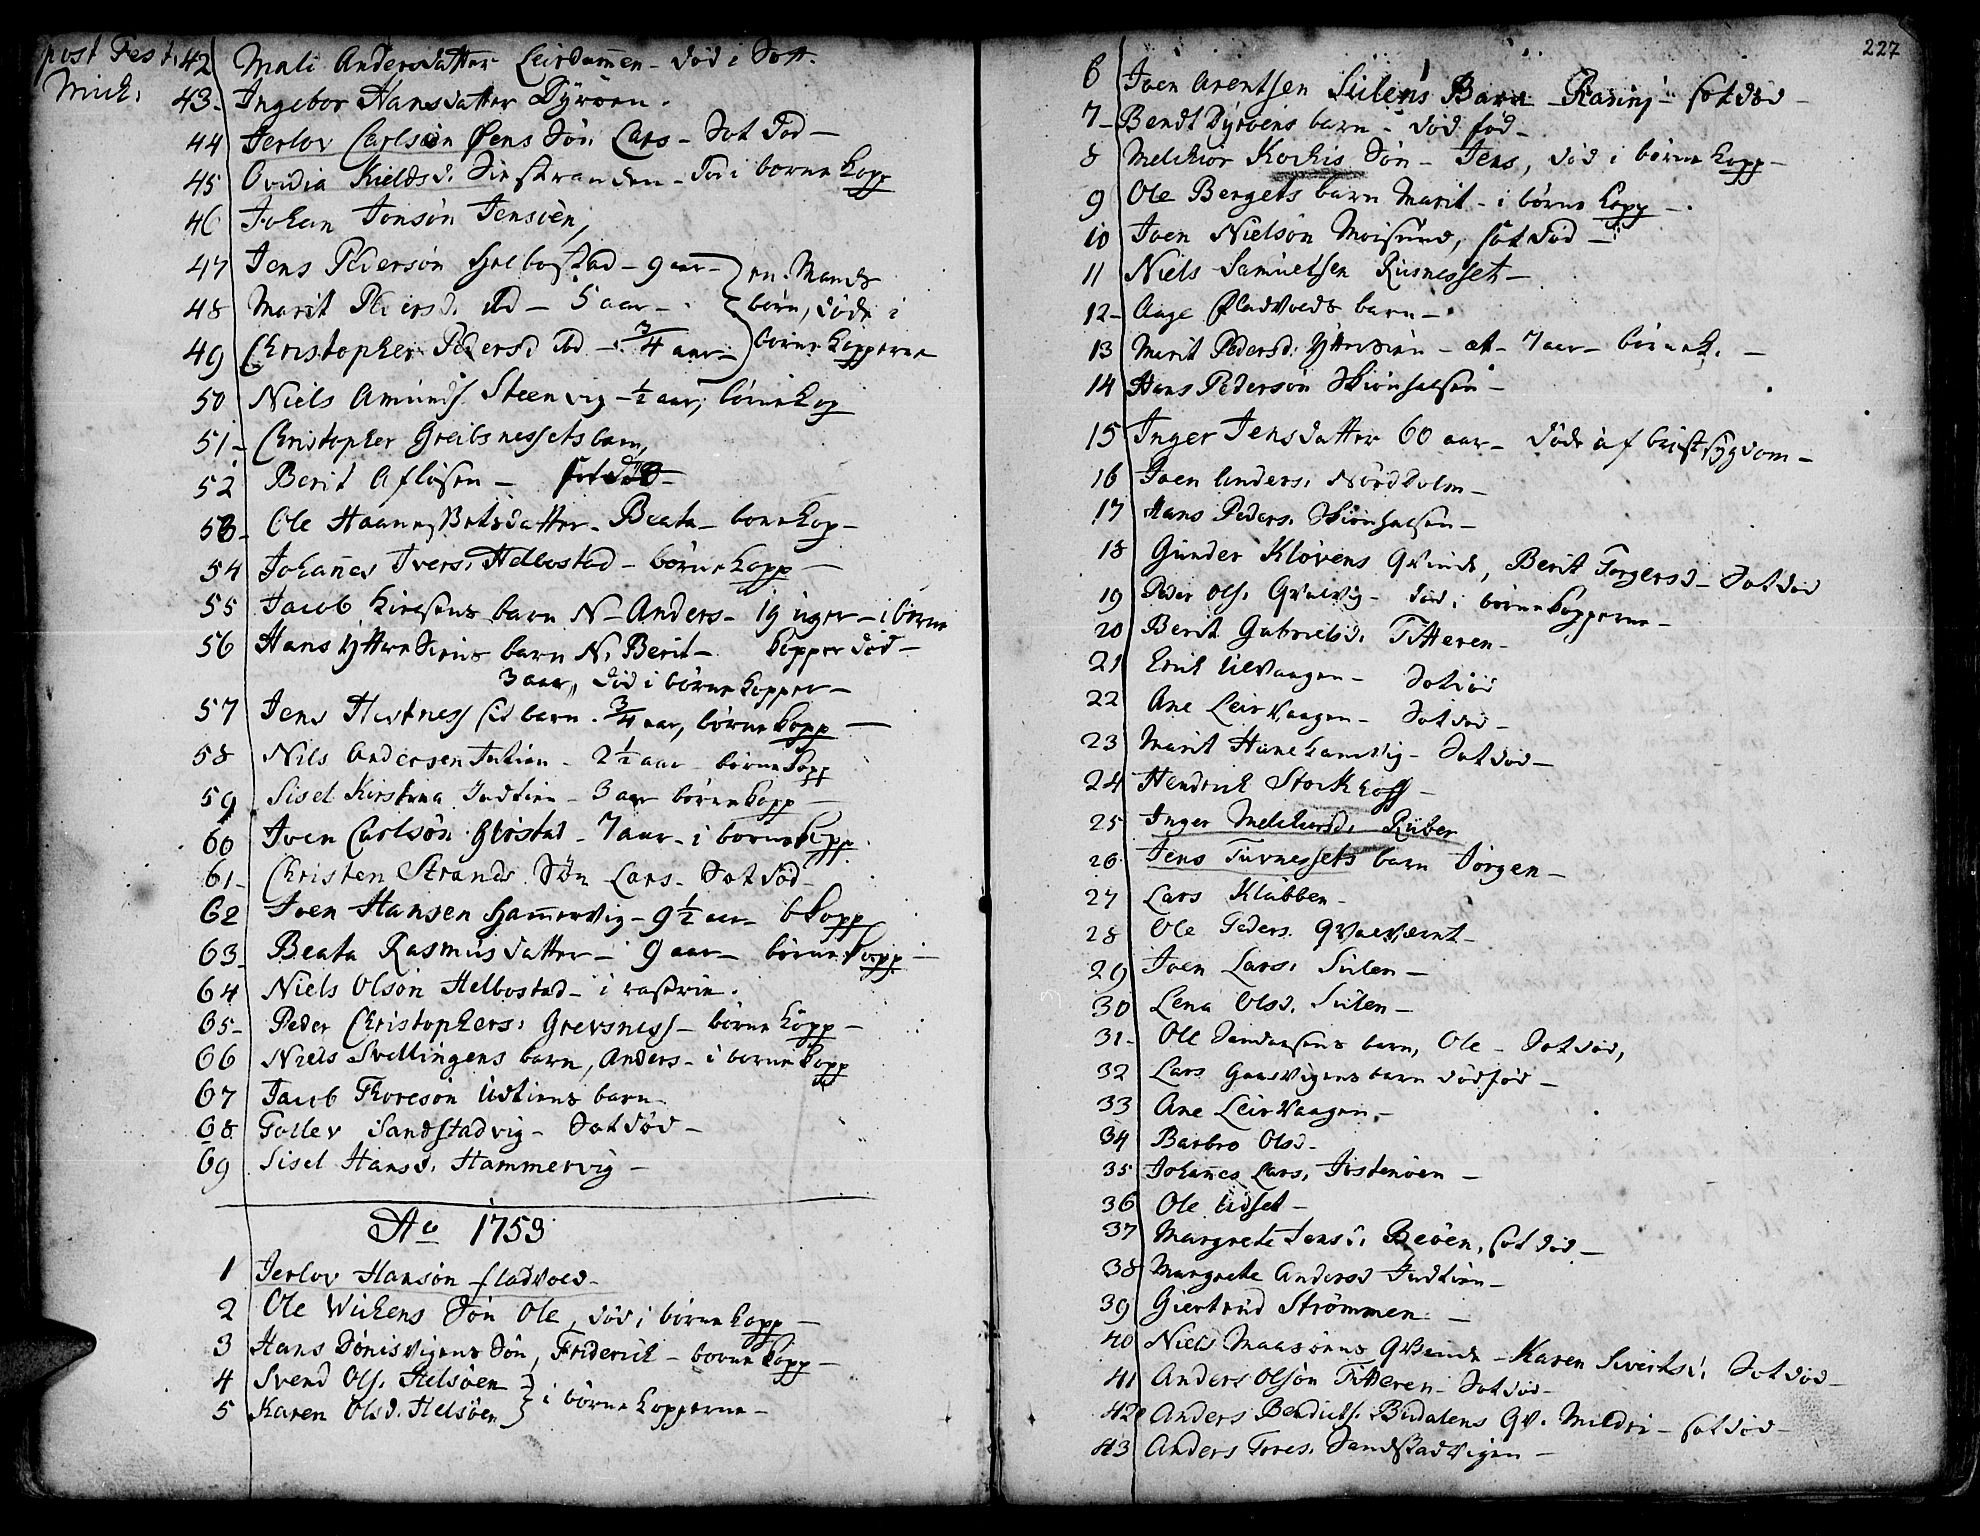 post Fest.
Mich:
42 Mali Andersdatter Leirdamen - död i Sott.
43 - Ingebor Hansdatter Dyröen.
44 Jerlov Carlsøn Øens Søn Lars - Sot Död -
45 Ovidia Kieldsd. - död i börne kopp
46 Johan Jonsön Jensöen,
47 Jens Pedersön Helbostad - 9 aar -
48 Marit Pedersd. ibd - 5 aar -
49 Christopher Pedersd ibd - 3/4 aar -
en Mands börn, döde i börne kopperne
50 Niels Amunds. Steenvig - 1/2 aar, börne kop
51 - Christopher Greibsnessets barn,
52 Berit Aflösen -
53 - Ole datter - Beata - bönekop -
54 Johañes Ivers: Helbostad - börne kopp -
55 Jacob barn N - Anders - 19 uger - i börne
56 Hans Yttre barn N. Berit - kopper död -
3 aar, död i börne kopper -
57 Jens Hestness barn - 3/4 aar, börne kopp -
58 Nils Andersen - 2 1/2 aar - börne kopp
59 Sisel Kirstina - 3 aar börne kopp -
60 Iven Carlsön - 7 aar - i börne kopp.
61 - Christen Strands Sön Lars - Sot död -
62 Iven Hansen Hamervig - 9 1/2 aar - b kopp
63 - Beata Rasmusdatter - 9 aar - börne kopp -
64 Niels Olsön Helbostad - i
65 - Peder Christophers: Grevsness - börne kopp -
66 Niels Svellingens barn, Anders - i börne kopp
67 Jacob Thoresön Udtiens barn -
68 Tollev Sandstadvig - Sot död -
69 Sisel Hansd. Hammervig -
Ao 1753
1 Jerlov Hansön fladvold -
2 Ole Wickens Sön Ole, död i börne kopp -
3 Hans Dönisvigens Sön, Friderich - börne kopp -
4 Svend Ols. Helsöen
5 Karen Olsd. Helsöen } i börne kopperne -
227
6 Iven Arentsen Sulens Barn - Rasmj - sot död -
7 - Bendt Dyröens barn - död fød -
8 Melchior Kochis Sön - Jens, död i börne kopp -
9 Ole Bergets barn Marit - i börne kopp -
10 Iven Nielsön Moisund, sot död -
11 Niels Samuelsen Rusnesset -
12 - Aage fladvolds barn -
13 Marit Pedersd: Yttersien - æt - 7 aar - börnek. -
14 Hans Pedersön Skiönhalsen -
15 Inger Jensdatter 60 aar - döde af brÿstsygdom -
16 Iven Anders: Nordholm -
17 Hans Peders. Skiönhalsen -
18 Gunder Klövens Qvinde, Berit Torgersd - Sot död
19 Peder Ols. Qvalvig - död i börne kopperne -
20 Berit Gabrielsd: Titteren -
21 Erich Ulvaagen - Sot död
22 Ane Leirvaagen - Sot död -
23 Marit Hanehamvig - Sot död -
24 Hendrich Storchoff -
25 Inger Melchersd: Ruber
26 Jens Turnessets barn Jörgen -
27 Lars Klubben -
28 Ole Peders. Qvalværnt -
29 Iven Lars: Sulen -
30 Lena Olsd. Sulen -
31 - Ole barn, Ole - Sot död,
32 Lars Gaasvigens barn dödfød -
33 Ane Leirvaagen -
34 Barbro Olsd -
35 Johañes Lars, Jostenöen -
36 Ole Udset -
37 Margrete Jensd. Beöen, sot död -
38 Margrete Andersd Indtien -
39 Giertrud Strömmen -
40 Niels Maasöens Qvinde - Karen Sivertsd. Sot död -
41 Anders Olsön Titteren - Sot död -
42 Anders Bendicts. Budalens Qv. Mildri - sot död -
43 Anders Tores. Sandstadvigen -